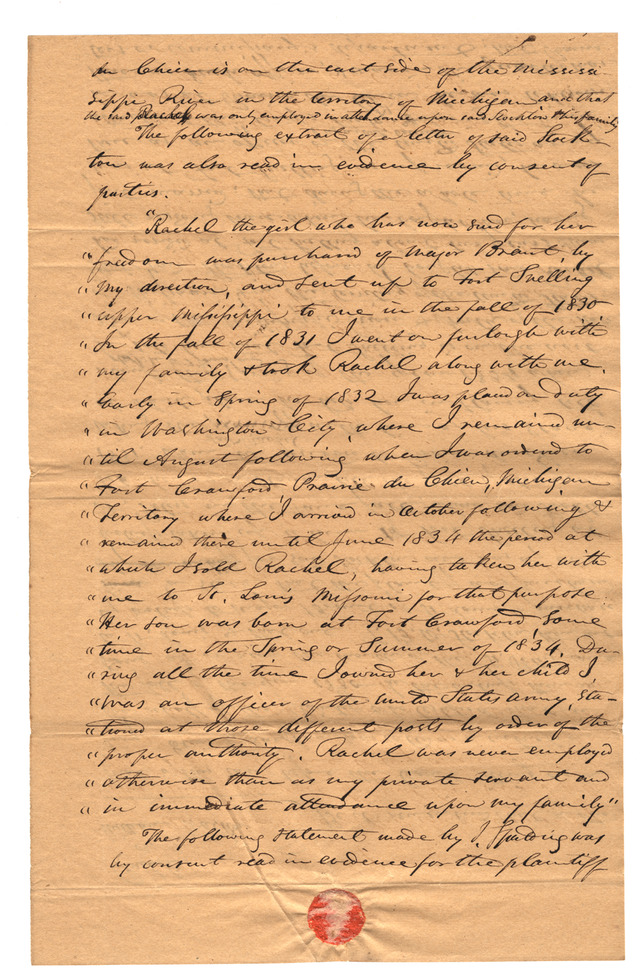 du Chien is on the east side of the Missisi
sippi River in the territory of Michigan and that
the said Rachel was only employed in attendance upon said Stockton & his family
The following extract of a letter of said Stock-
ton was also read in evidence by consent of
parties.
"Rachel the girl who has now sued for her
"freedom was purchased of Major Brant, by
"my direction, and sent up to Fort Snelling
"upper Mississippi to me in the fall of 1830
"In the fall of 1831 I went on furlough with
"my family & took Rachel along with me.
"Early in Spring of 1832 I was placed on duty
"in Washington City, where I remained un-
"til August following when I was ordered to
"Fort Crawford Prairie du Chien, Michigan
"Territory where I arrived in October following &
"remained there until June 1834 the period at
"which I sold Rachel, having taken her with
"me to St. Louis Missouri for that purpose.
"Her son was born at Fort Crawford, some
"time in the Spring or Summer of 1834. Du-
"ring all the time I owned her & her child I
"was an officer of the united States army, sta-
"tioned at those different posts by order of the
"proper authority. Rachel was never employed
"otherwise than as my private servant and
"in immediate attendance upon my family"
The following statement made by J. Spalding was
by consent read in evidence for the plaintiff